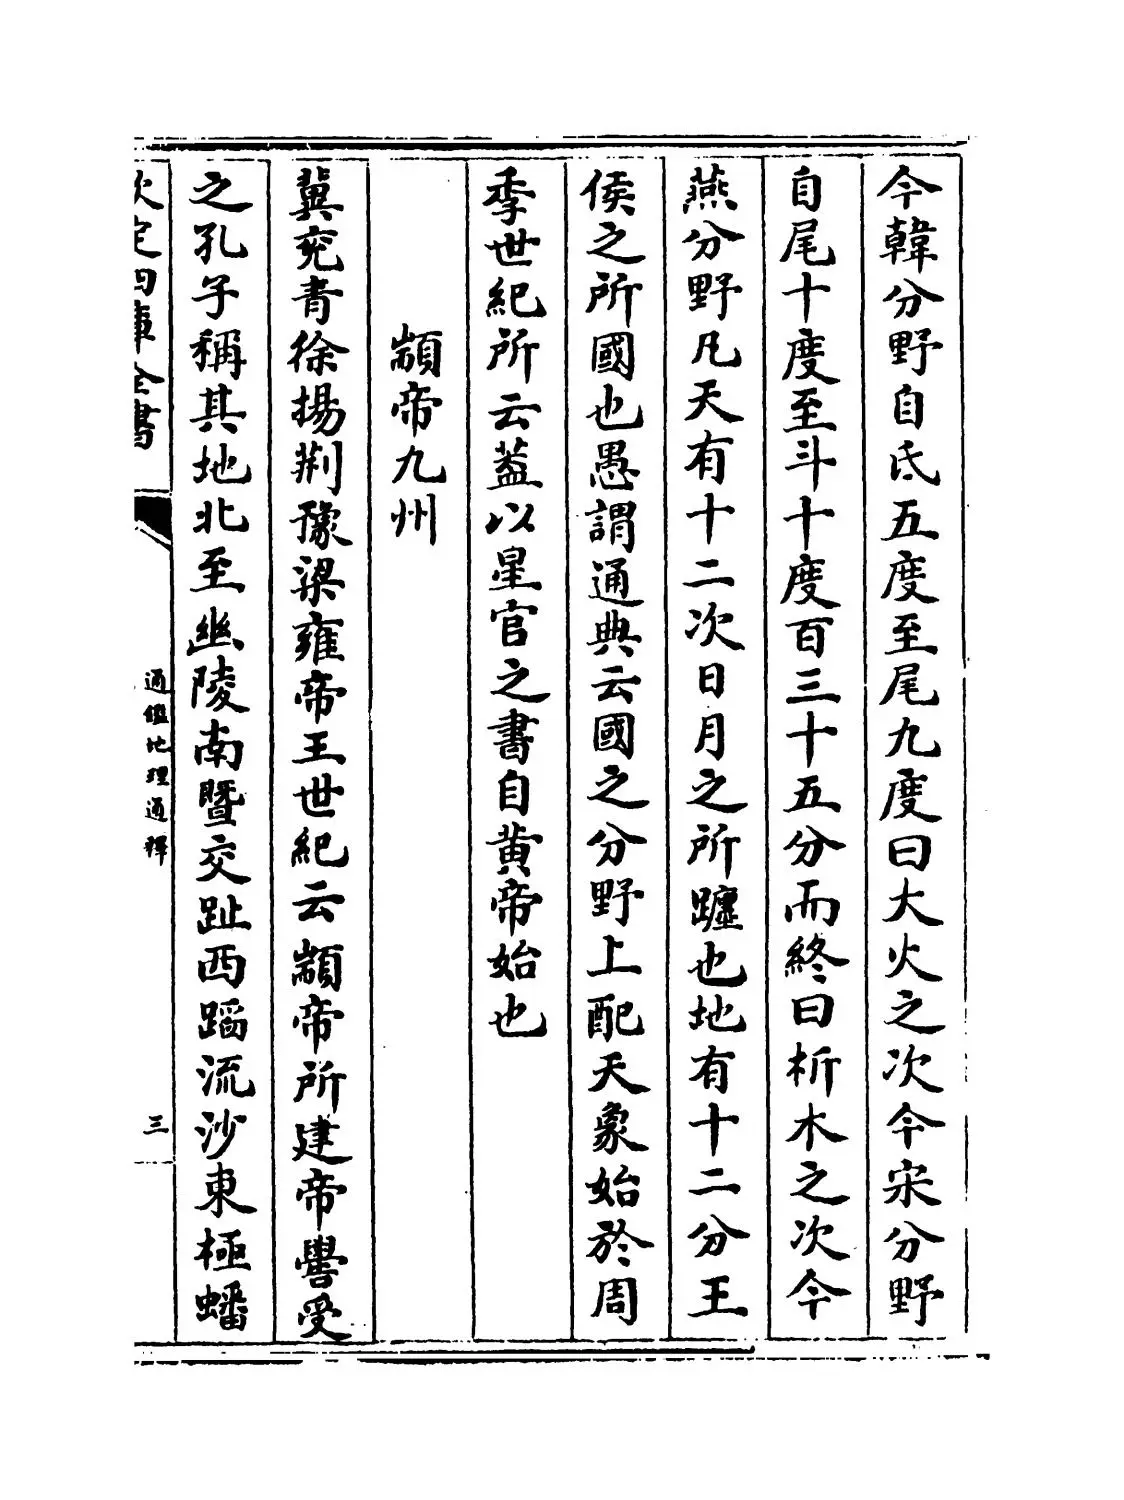 今韓分野自氐五度至尾九度曰大火之次今宋分野
自尾十度至斗十度百三十五分而終曰析木之次今
燕分野凡天有十二次日月之所躔也地有十二分王
侯之所國也愚謂通典云國之分野上配天象始於周
季世紀所云葢以星官之書自黄帝始也
顓帝九州
冀兖青徐揚荆豫梁雍帝王世紀云顓帝所建帝嚳受
之孔子稱其地北至幽陵南暨交趾西蹈流沙東極蟠
欽定四庫全書
通鑑地理通釋
三